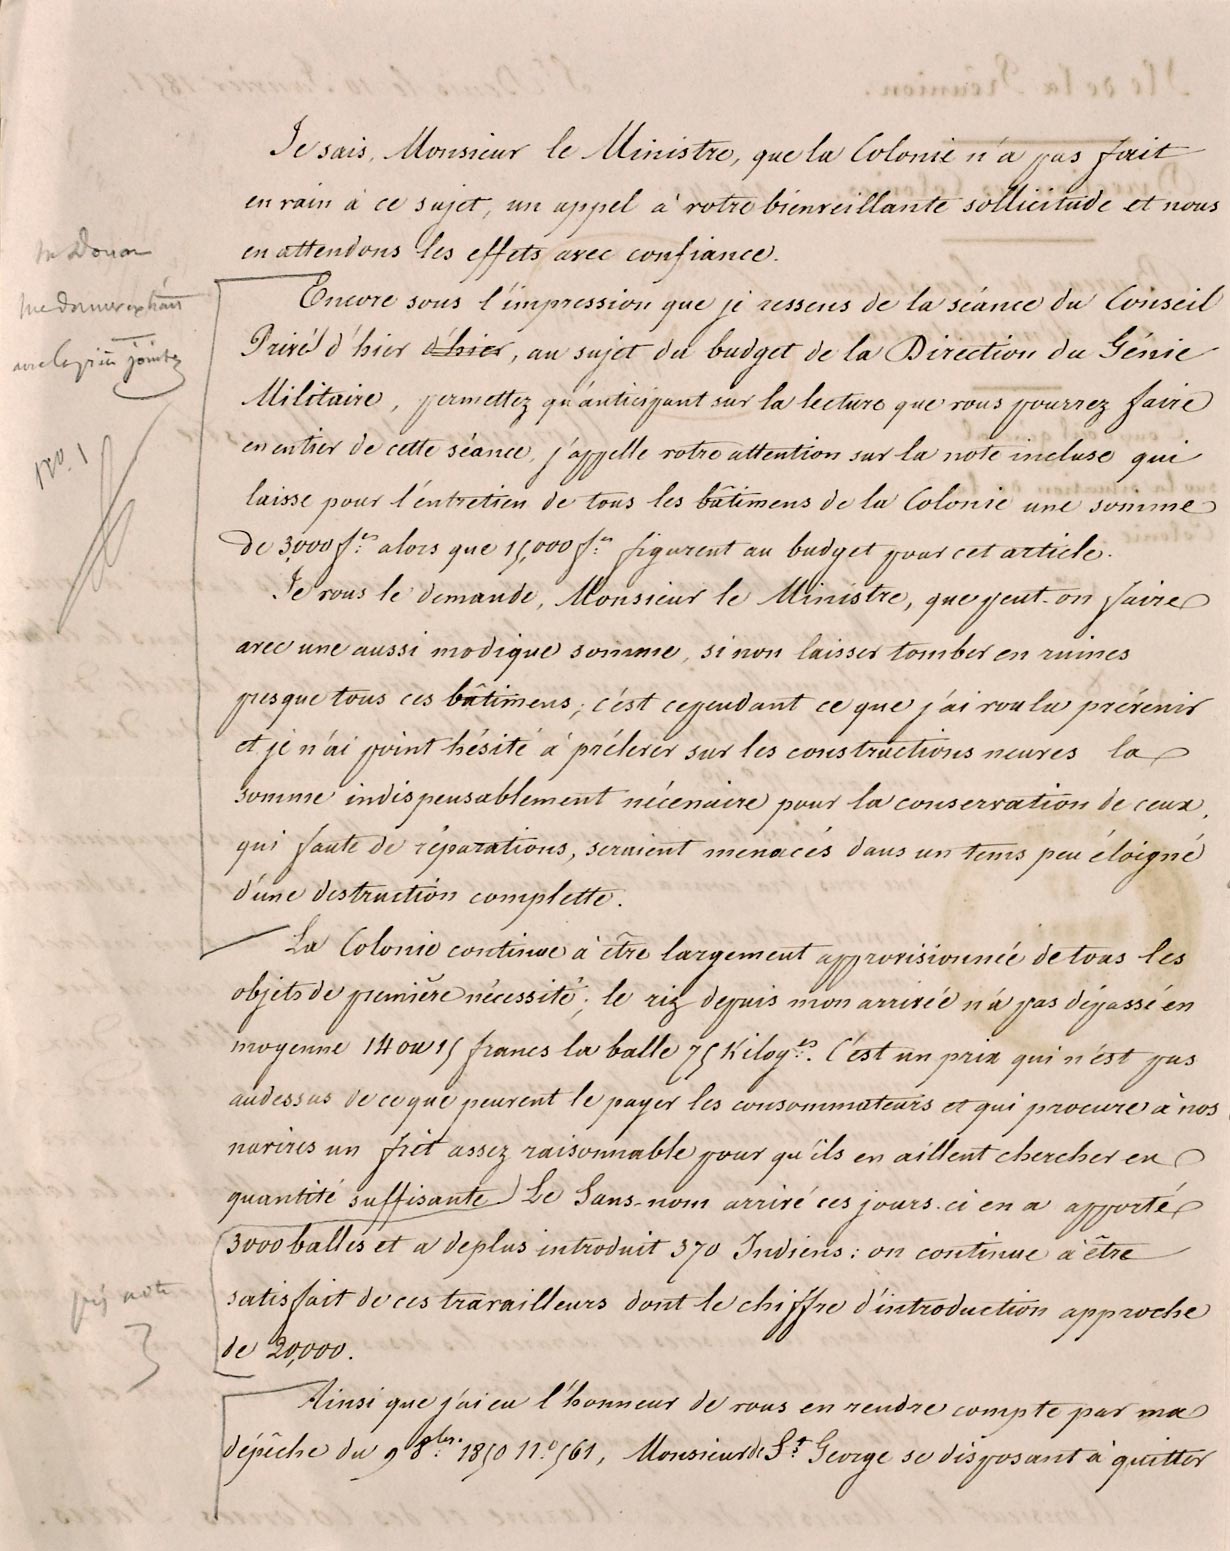 Je sais, Monsieur le Ministre, que la Colonie n'a pas fait
en vain à ce sujet, un appel à votre bienveillante sollicitude et nous
en attendons les effets avec confiance.
Encore sous l'impression que je ressens de la séance du Conseil
Privé d'hier d'hier, au sujet du budget de la Direction du Génie
Militaire, permettez qu'anticipant sur la lecture que vous pourrez faire
en entier de cette séance, j'appelle votre attention sur la note incluse qui
laisse pour l'entretien de tous les bâtimens de la Colonie une somme
de 3,000 f.cs alors que 15,000 f.cs figurent au budget pour cet article.
Je vous le demande, Monsieur le Ministre, que peut-on faire
avec une aussi modique somme, si non laisser tomber en ruines
presque tous ces bâtimens; c'est cependant ce que j'ai voulu prévenir
et je n'ai point hésité à prélever sur les constructions neuves la
somme indispensablement nécessaire pour la conservation de ceux,
qui faute de réparations, seraient menacés dans un tems peu éloigné
d'une destruction complette.
La Colonie continue à être largement approvisionnée de tous les
objets de première nécessité; le riz depuis mon arrivée n'a pas dépassé en
moyenne 14 ou 15 francs la balle 75 Kilog.es. C'est un prix qui n'est pas
audessus de ce que peuvent le payer les consommateurs et qui procure à nos
navires un frêt assez raisonnable pour qu'ils en aillent chercher en
quantité suffisante) Le Sans-nom arrivé ces jours-ci en a apporté
3000 balles et a deplus introduit 370 Indiens: on continue à être
satisfait de ces travailleurs dont le chiffre d'introduction approche
de 20,000.
Ainsi que j'ai eu l'honneur de vous en rendre compte par ma
dépêche du 9 8bre. 1850 N.o 561, Monsieur de St. George se disposant à quitter
me donner extrait
avec les pièces jointes
note